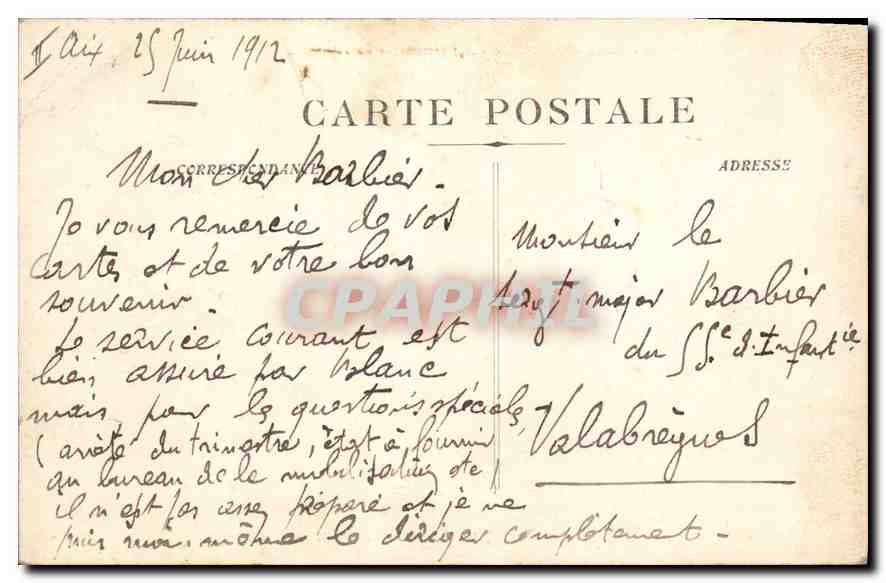 Aix, 25 Juin 1912
CARTE POSTALE
CORRESPONDANCE
ADRESSE
Mon cher Barbier.
Je vous remercie de vos
cartes et de votre bon
souvenir.
Le service courant est
bien assuré par Blanc
mais pour les questions spéciales,
(arrêté du trimestre, état à fournir
au bureau de la mobilisation etc)
il n'est pas assez préparé et je ne
puis moi-même le diriger complètement.
Monsieur le
Sergt. major Barbier
du 55.e d'Infantie
Valabrègues
CPAPHIL